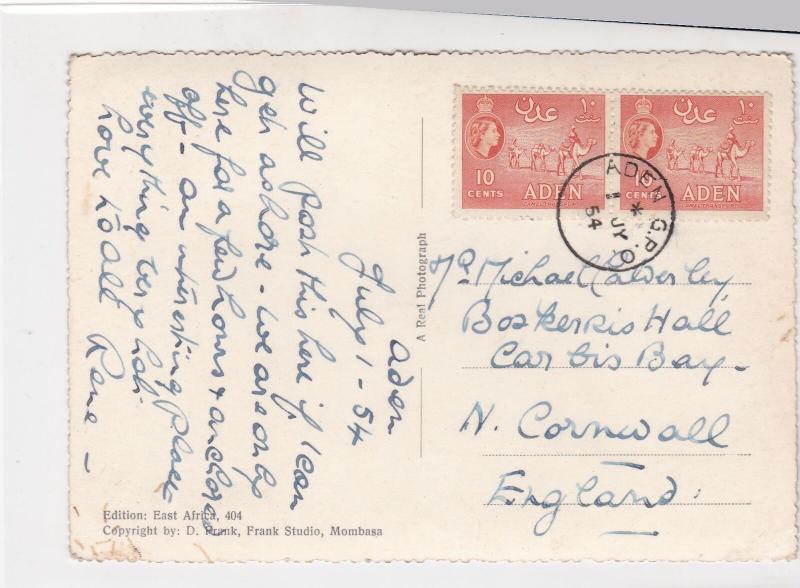 Aden
July 1 - 54
Will post this here if I can
get ashore - we are only
here for a few hours & anchored
off - an interesting place
everything very hot.
Love to all Rene -
A Real Photograph
Edition: East Africa, 404
Copyright by: D. Prank, Frank Studio, Mombasa
عدن ١٠ سنت
10 CENTS ADEN
CAMEL TRANSPORT
عدن ١٠ سنت
10 CENTS ADEN
CAMEL TRANSPORT
ADEN G.P.O.
1 JY
54
Michael Calderley
Boskerris Hall
Carbis Bay -
N. Cornwall
England